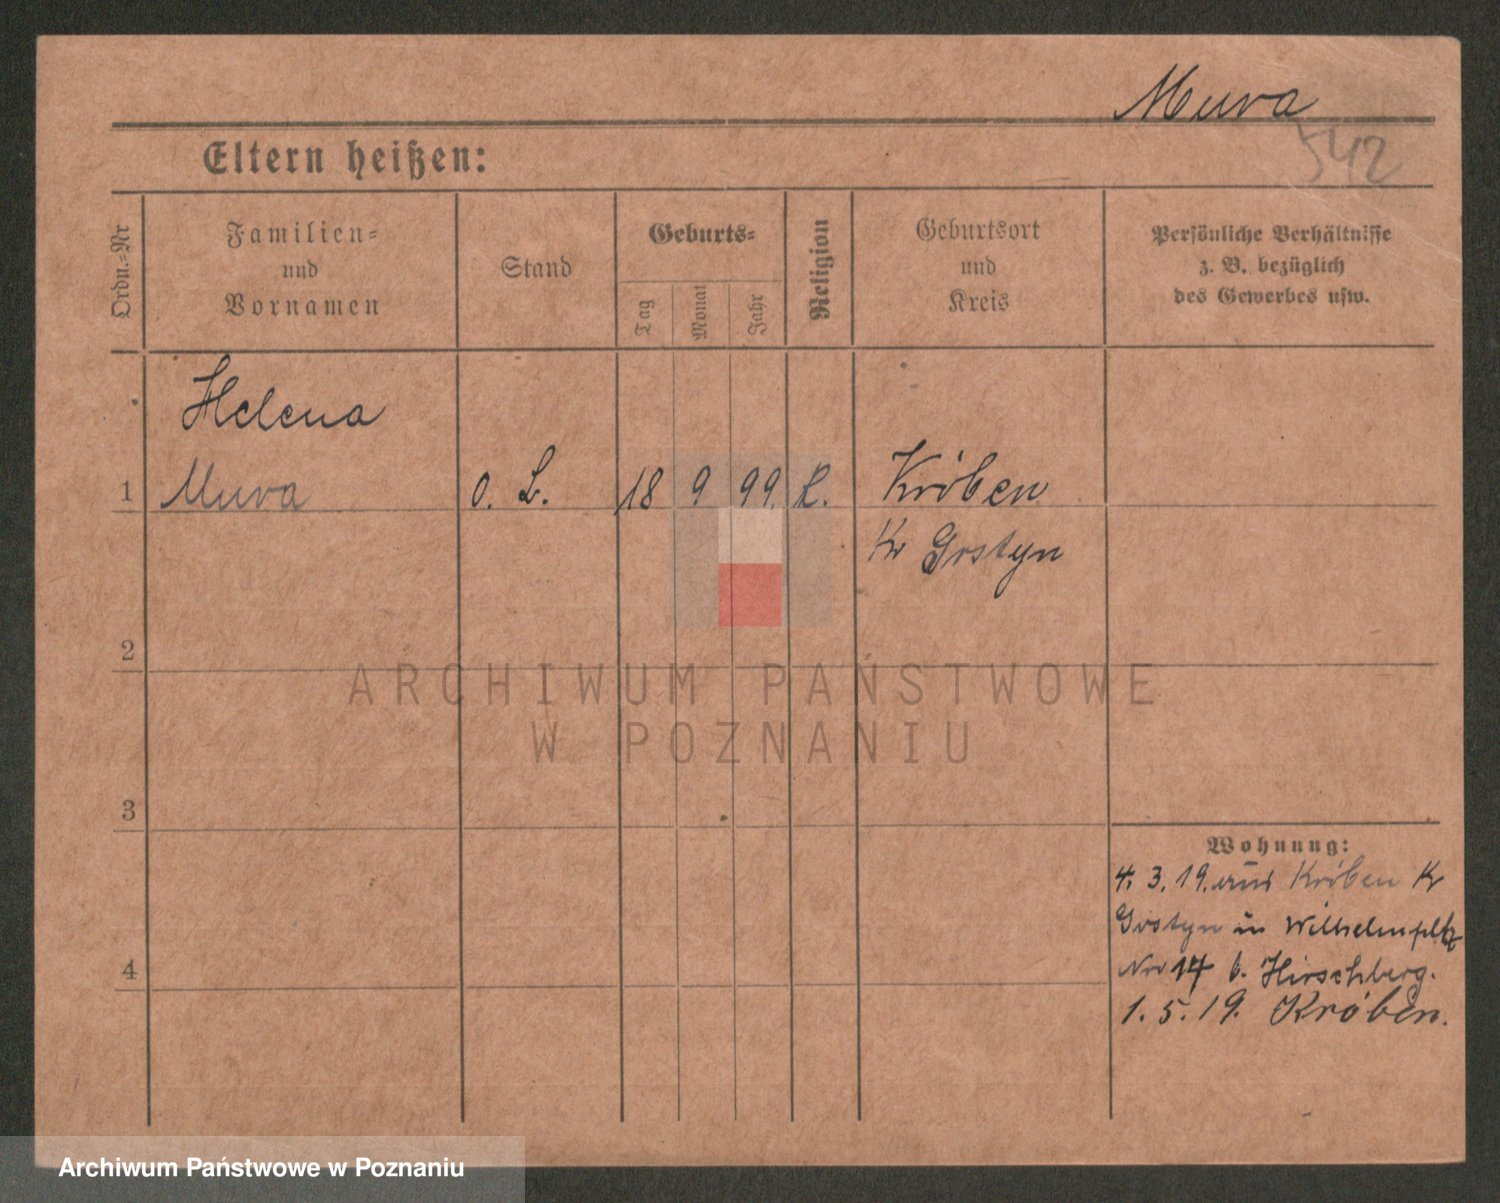 Mura
542
Eltern heißen:
Ordn.-Nr
Familien-
und
Vornamen
Stand
Geburts-
Tag
Monat
Jahr
Religion
Geburtsort
und
Kreis
Persönliche Verhältnisse
z. B. bezüglich
des Gewerbes usw.
Helena
1 Mura o. B. 18 9 99. K. Kröben
Kr Gostyn
2
ARCHIWUM PAŃSTWOWE
W POZNANIU
3
4
Wohnung:
4. 3. 19. aus Kröben Kr
Gostyn in Wilhelmpltz
No 14 b. Hirschberg.
1. 5. 19. Kröben.
Archiwum Państwowe w Poznaniu